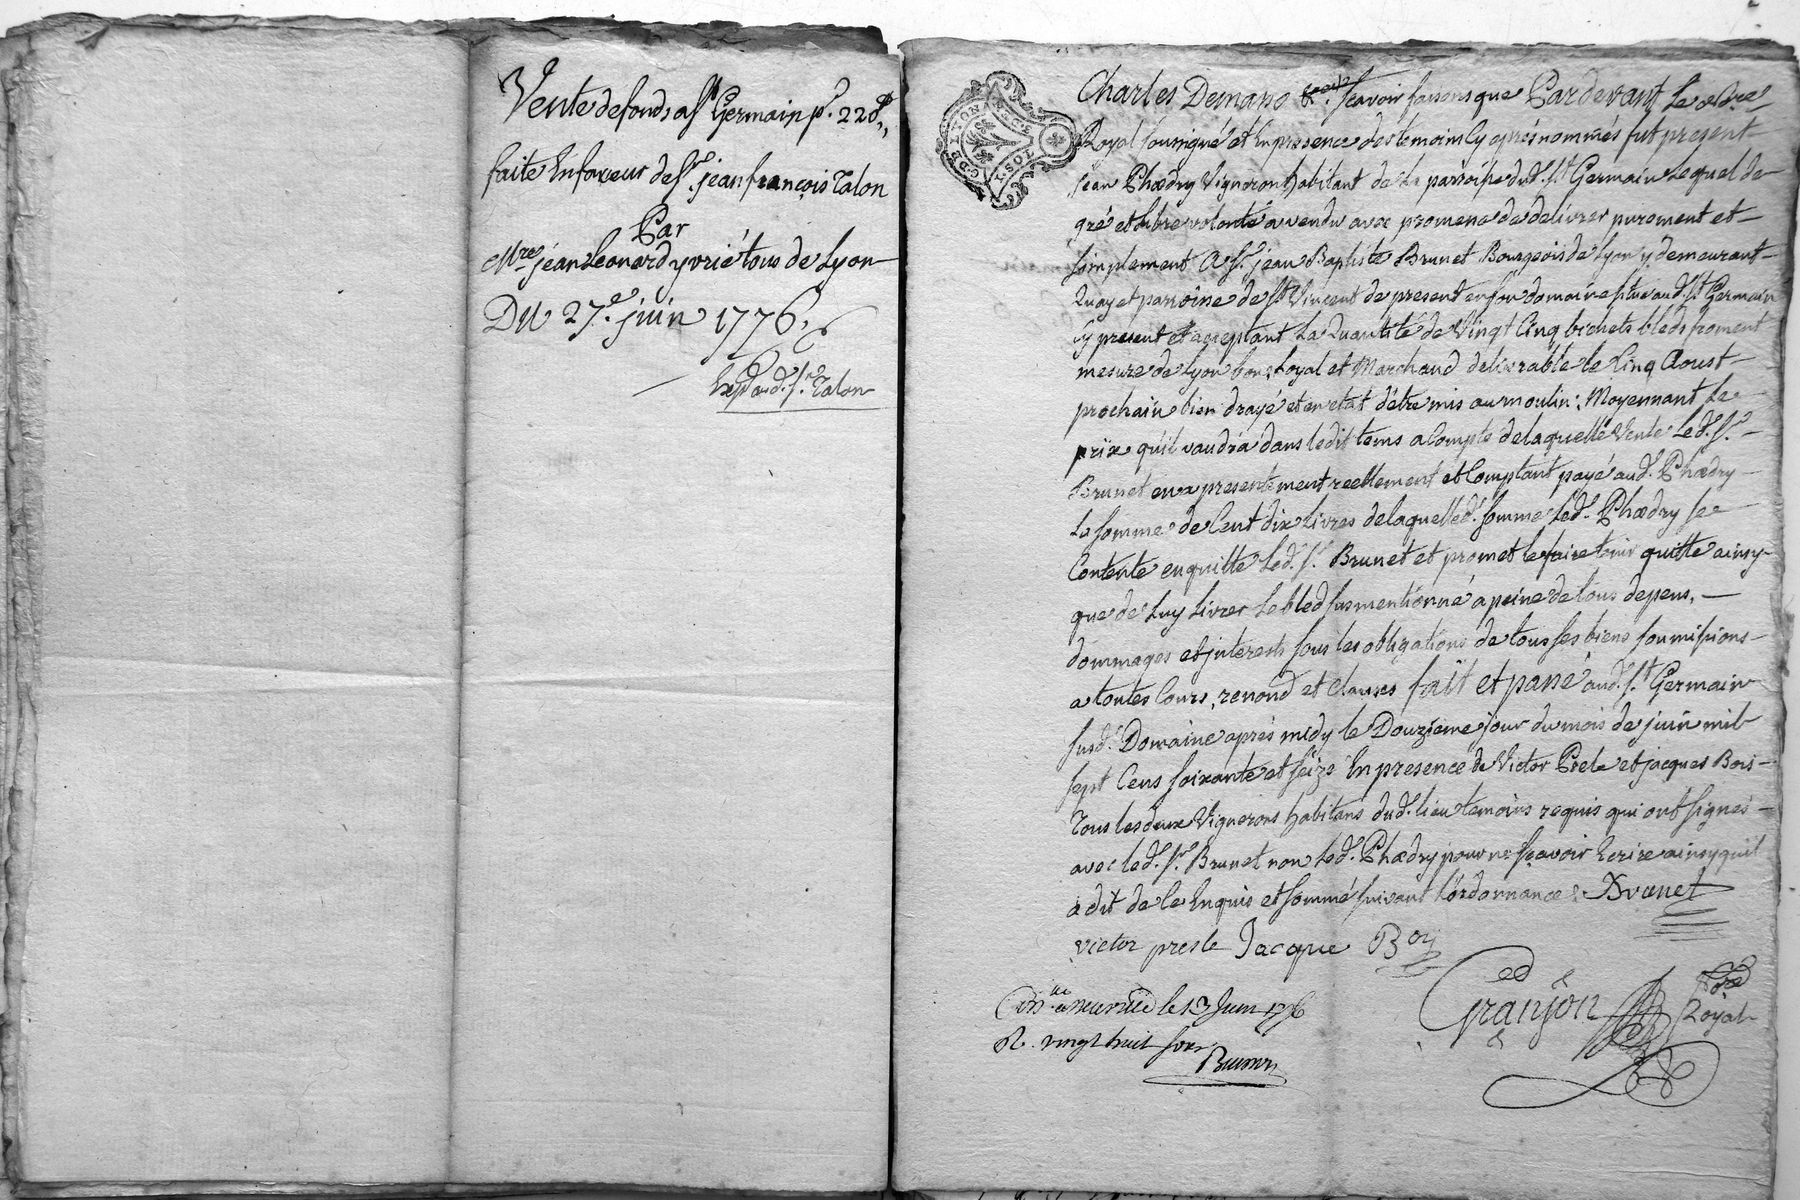 Vente de fonds a St Germain pr. 228#,,
faite En faveur de Sr jean françois Talon
Par
Mre jean Leonard yvrié tous de Lyon
DU 27e. juin 1776,
Expd aud. Sr. Talon
G. DE LYON
13 DEN.
Charles Demano &c. Scavoir faisons que Pardevant Le Nore
Royal soussigné et En presence des temoins Cy aprés nommés fut present
jean Phædry Vigneron habitant de La parroisse dud. St Germain Lequel de
gré et Libre volonté a vendu avec promesse de delivrer purement et
simplement A Sr. jean Baptiste Brunet Bourgeois de Lyon y demeurant
Quay et parroisse de St Vincent de present en son domaine situé aud. St Germain
cy present et acceptant La Quantité de Vingt Cinq bichets bled froment
mesure de Lyon bon, Loyal et Marchand delivrable le Cinq Aoust
prochain bien drayé et en etat d'être mis au moulin; Moyennant Le
prix qu'il vaudra dans ledit tems a Compte de laquelle Vente Led. Sr.
Brunet en a presentement reellement et Comptant payé aud. Phædry
La somme de Cent dix Livres de laquelle d. somme Led. Phædry se
Contente en quitte Led. Sr. Brunet et promet le faire tenir quitte ainsy
que de Luy Livrer Le bled susmentionné a peine de tous depens,
dommages et interests sous les obligations de tous ses biens soumissions
a toutes Cours, renond et clauses fait et passé aud. St Germain
susd. Domaine aprés midy le Douzieme jour du mois de juin mil
sept Cens soixante et seize En presence de Victor Prele et jacques Bois
Tous les deux Vignerons habitans dud. lieu temoins requis qui ont signés
avec led. Sr. Brunet non Led. Phædry pour ne sçavoir Ecrire ainsy qu'il
a dit de Ce Enquis et sommé suivant L'ordonnance: Brunet
victor presle Jacque Boy
Granjon Nore Royal
Con.lle a Neuville le 13 Juin 1776
R. vingt huit sols